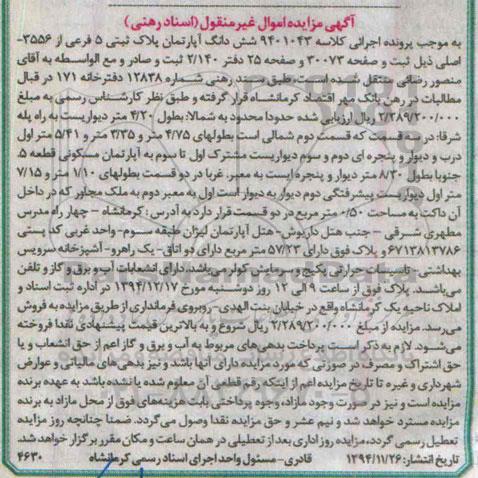 آگهی مزایده اموال غیرمنقول (اسناد رهنی)
به موجب پرونده اجرائی کلاسه ۹۴۰۱۰۴۳ شش دانگ آپارتمان پلاک ثبتی ۵ فرعی از ۳۵۵۶-
اصلی ذیل ثبت و صفحه ۳۰۰۷۳ و صفحه ۲۵ دفتر ۲/۱۴۰ ثبت و صادر و مع الواسطه به آقای
منصور رضائی منتقل شده است، طبق سند رهنی شماره ۱۲۸۳۸ دفترخانه ۱۷۱ در قبال
مطالبات در رهن بانک مهر اقتصاد کرمانشاه قرار گرفته و طبق نظر کارشناس رسمی به مبلغ
۲/۲۸۹/۲۰۰/۰۰۰ ریال ارزیابی شده حدودا محدود به شمالا: بطول ۴/۲۰ متر دیواریست به راه پله
شرقا: در سه قسمت که قسمت دوم شمالی است بطولهای ۴/۷۵ متر و ۳/۳۵ متر و ۵/۴۱ متر اول
درب و دیوار و پنجره ای دوم و سوم دیواریست مشترک اول تا سوم به آپارتمان مسکونی قطعه ۵.
جنوبا بطول ۸/۳۰ متر دیوار و پنجره ایست به معبر. غربا در دو قسمت بطولهای ۱/۱۰ متر و ۷/۱۵
متر اول دیواریست پیشرفتگی دوم دیوار به دیوار است اول به معبر دوم به ملک مجاور که در داخل
آن داکت به مساحت ۰/۵۰ متر مربع در دو قسمت قرار دارد به آدرس: کرمانشاه - چهار راه مدرس
مطهری شرقی - جنب هتل داریوش-هتل آپارتمان لیزان طبقه سوم-واحد غربی کد پستی
۶۷۱۳۸۱۳۷۸۶ و پلاک فوق دارای ۵۷/۲۳ متر مربع دارای دو اتاق-یک راهرو- آشپزخانه سرویس
بهداشتی- تاسیسات حرارتی پکیج و سرمایش کولر می‌باشد، دارای انشعابات آب و برق و گاز و تلفن
می‌باشد. پلاک فوق از ساعت ۹ الی ۱۲ روز دوشنبه مورخ ۱۳۹۴/۱۲/۱۷ در اداره ثبت اسناد و
املاک ناحیه یک کرمانشاه واقع در خیابان بنت الهدی- روبروی فرمانداری از طریق مزایده به فروش
می‌رسد. مزایده از مبلغ ۲/۲۸۹/۲۰۰/۰۰۰ ریال شروع و به بالاترین قیمت پیشنهادی نقدا فروخته
می‌شود. لازم به ذکر است پرداخت بدهی‌های مربوط به آب و برق و گاز اعم از حق انشعاب و یا
حق اشتراک و مصرف در صورتی که مورد مزایده دارای آنها باشد و نیز بدهی‌های مالیاتی و عوارض
شهرداری و غیره تا تاریخ مزایده اعم از اینکه رقم قطعی آن معلوم شده یا نشده باشد به عهده برنده
مزایده است و نیز در صورت وجود مازاد، وجوه پرداختی بابت هزینه‌های فوق از محل مازاد به برنده
مزایده مسترد خواهد شد و نیم عشر و حق مزایده نقدا وصول می‌گردد. ضمنا چنانچه روز مزایده
تعطیل رسمی گردد، مزایده روز اداری بعد از تعطیلی در همان ساعت و مکان مقرر برگزار خواهد شد.
تاریخ انتشار: ۱۳۹۴/۱۱/۲۶ قادری- مسئول واحد اجرای اسناد رسمی کرمانشاه ۴۶۳۰